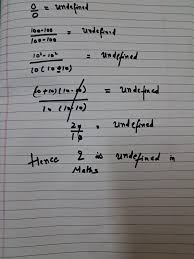 0/0 = undefined
100-100/100-100 = undefined
10²-10²/10(10-10) = undefined
(10+10)(10-10)/10(10-10) = undefined
20/10 = undefined
Hence 2 is undefined in
Maths